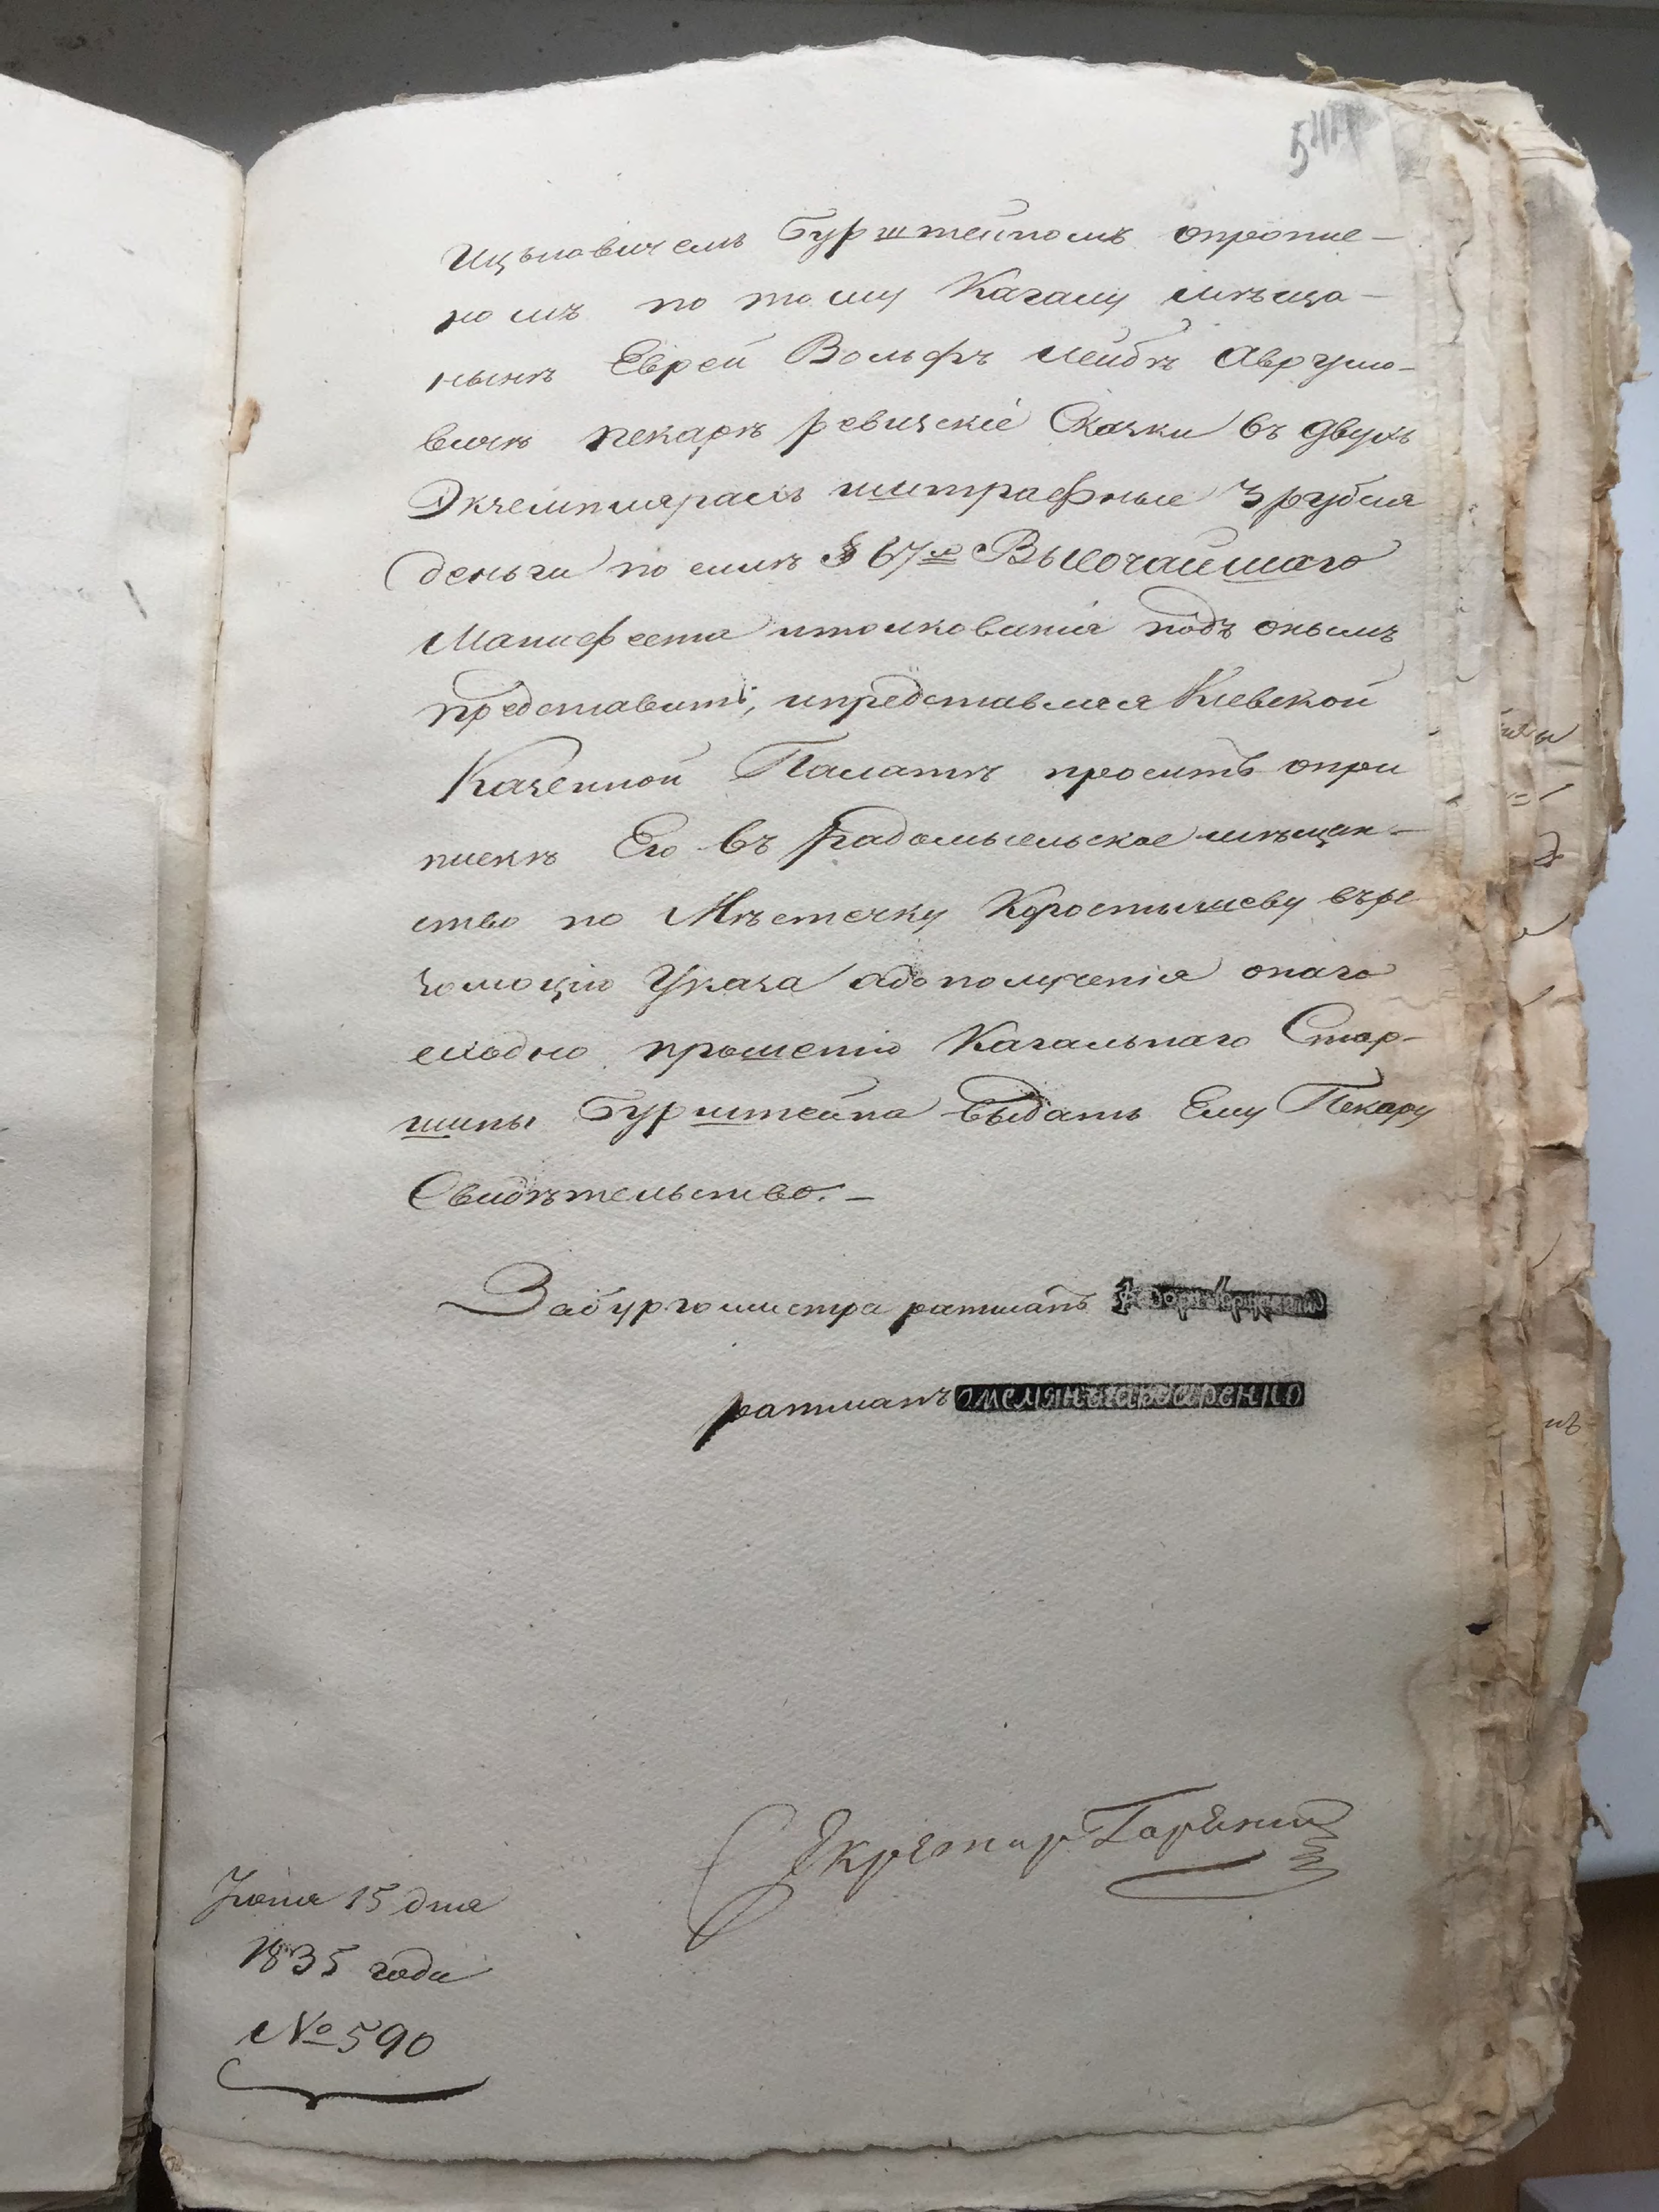 Ицьковичемъ Бурштейномъ опропие-
номъ по тому Кагалу мѣща-
нинъ Еврей Вольфъ Лейбъ Аврумо-
вичъ пекарь ревизскіе Скаски въ двухъ
Экземплярахъ штрафные 3 рубля
деньги по силѣ § 67го Высочайшаго
Манифеста итолкованія подъ онымъ
представилъ, ипредставляя Кіевской
Казенной Палатѣ проситъ опри
пискѣ Его въ Радомысльское мѣщан-
ство по Мѣстечку Коростышеву върѣ
золюцію Указа адополученія онаго
сходно прошенію Кагальнаго Стар-
шины Бурштейна выдать Ему Пекару
Свидѣтельство. –
Забургомистра ратманъ
ратманъ
Секретарь
Іюня 15 дня
1835 года
№ 590